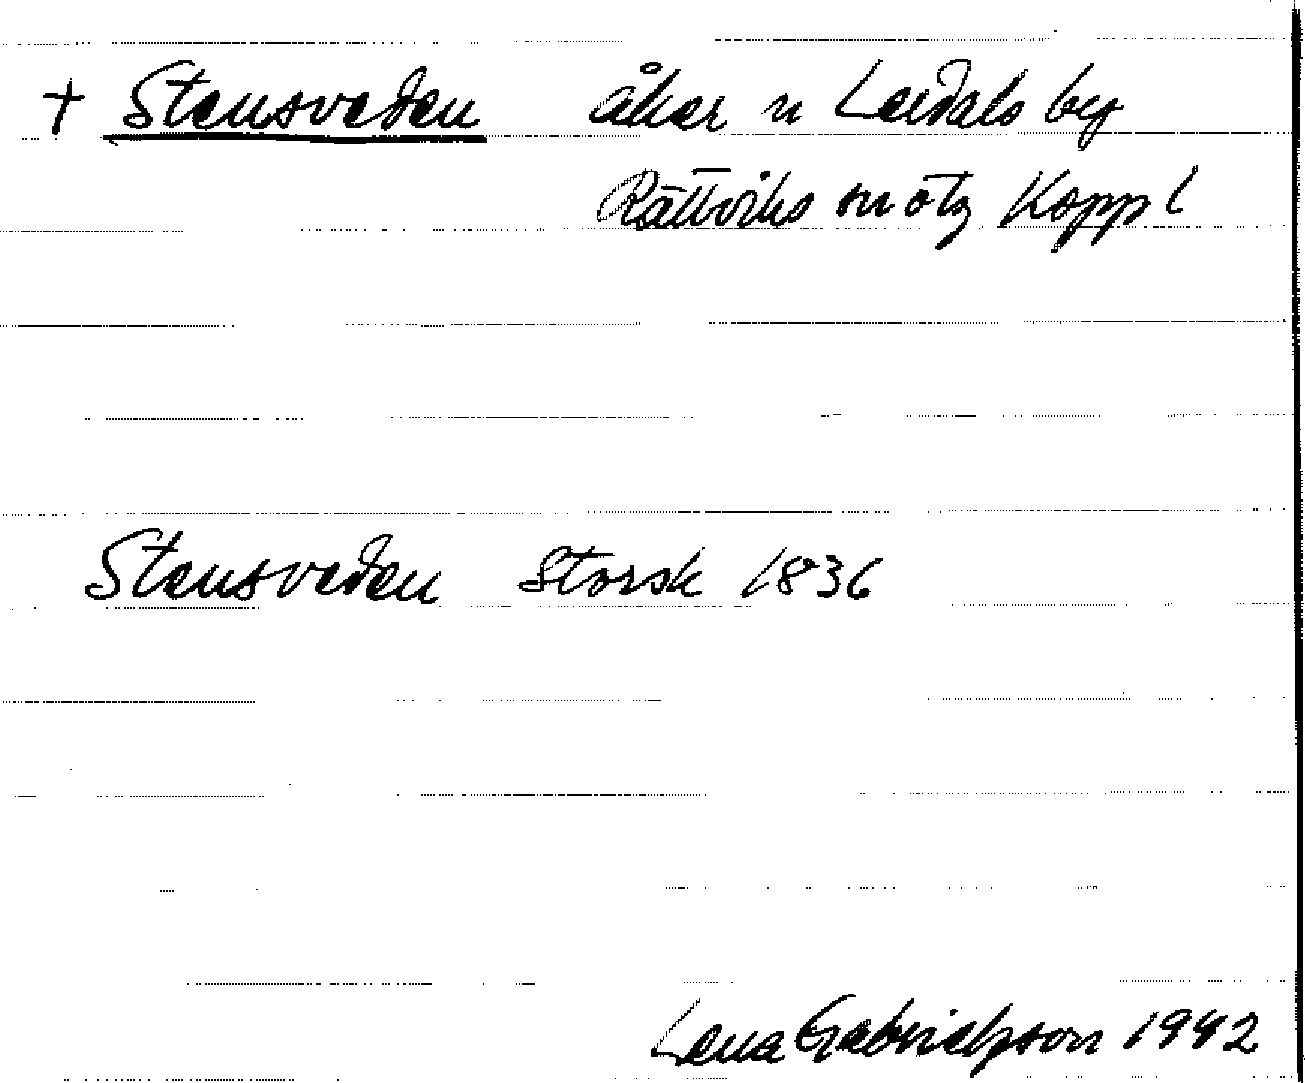 † Stensveden åker u Lerdals by
Rättviks sn o tg Kopp l
Stensveden Storsk 1836
Lena Gabrielsson 1942